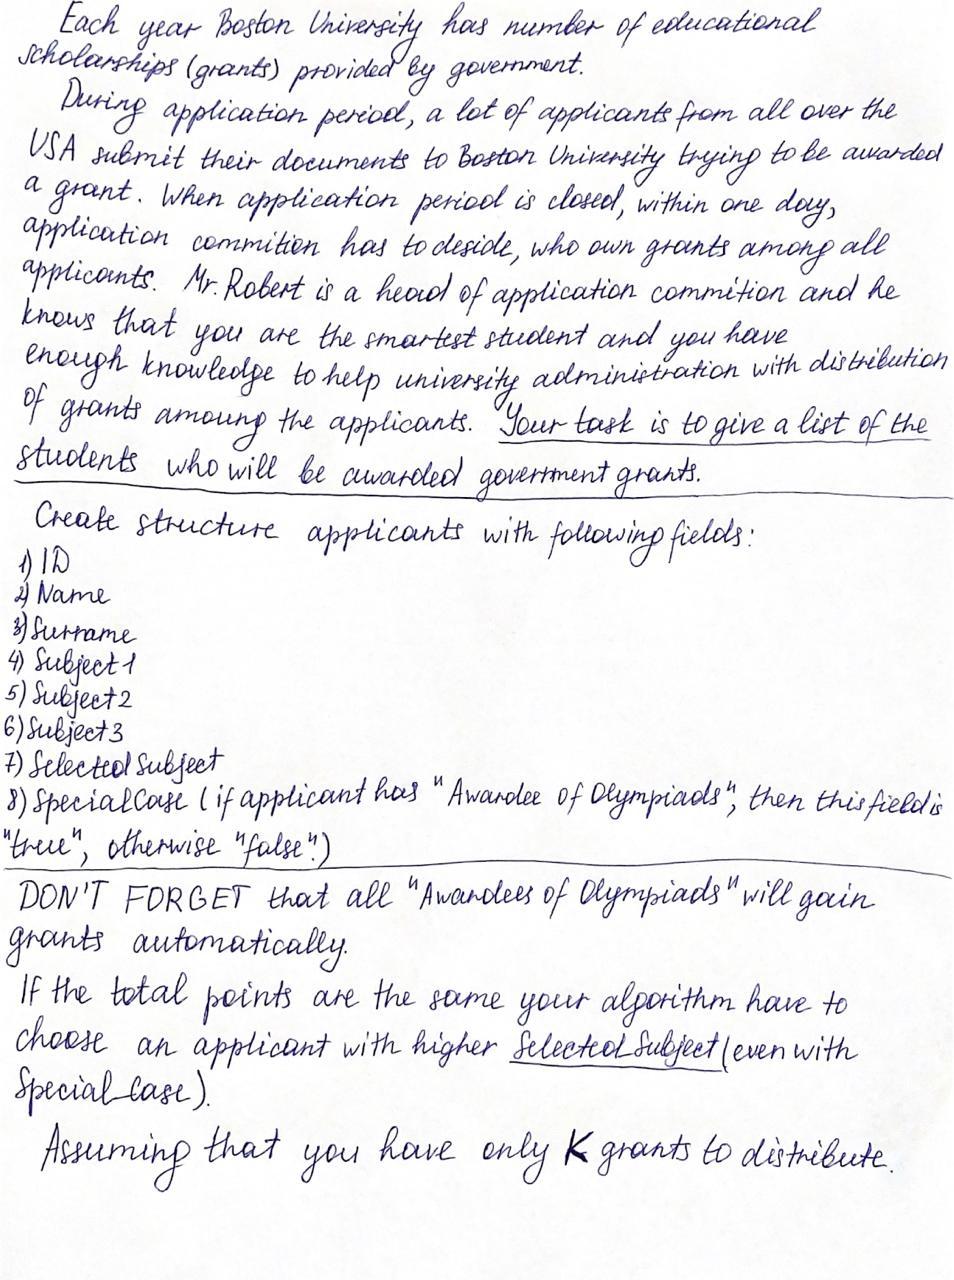 Each year Boston University has number of educational
scholarships (grants) provided by government.
During application period, a lot of applicants from all over the
USA submit their documents to Boston University trying to be awarded
a grant. When application period is closed, within one day,
application commition has to deside, who own grants among all
applicants. Mr. Robert is a head of application commition and he
knows that you are the smartest student and you have
enough knowledge to help university administration with distribution
of grants amoung the applicants. Your task is to give a list of the
students who will be awarded government grants.
Create structure applicants with following fields:
1) ID
2) Name
3) Surname
4) Subject1
5) Subject2
6) Subject3
7) Selected Subject
8) SpecialCase (if applicant has "Awardee of Olympiads", then this field is
"true", otherwise "false".)
DON'T FORGET that all "Awardees of Olympiads" will gain
grants automatically.
If the total points are the same your algorithm have to
choose an applicant with higher Selected Subject (even with
Special_Case).
Assuming that you have only K grants to distribute.